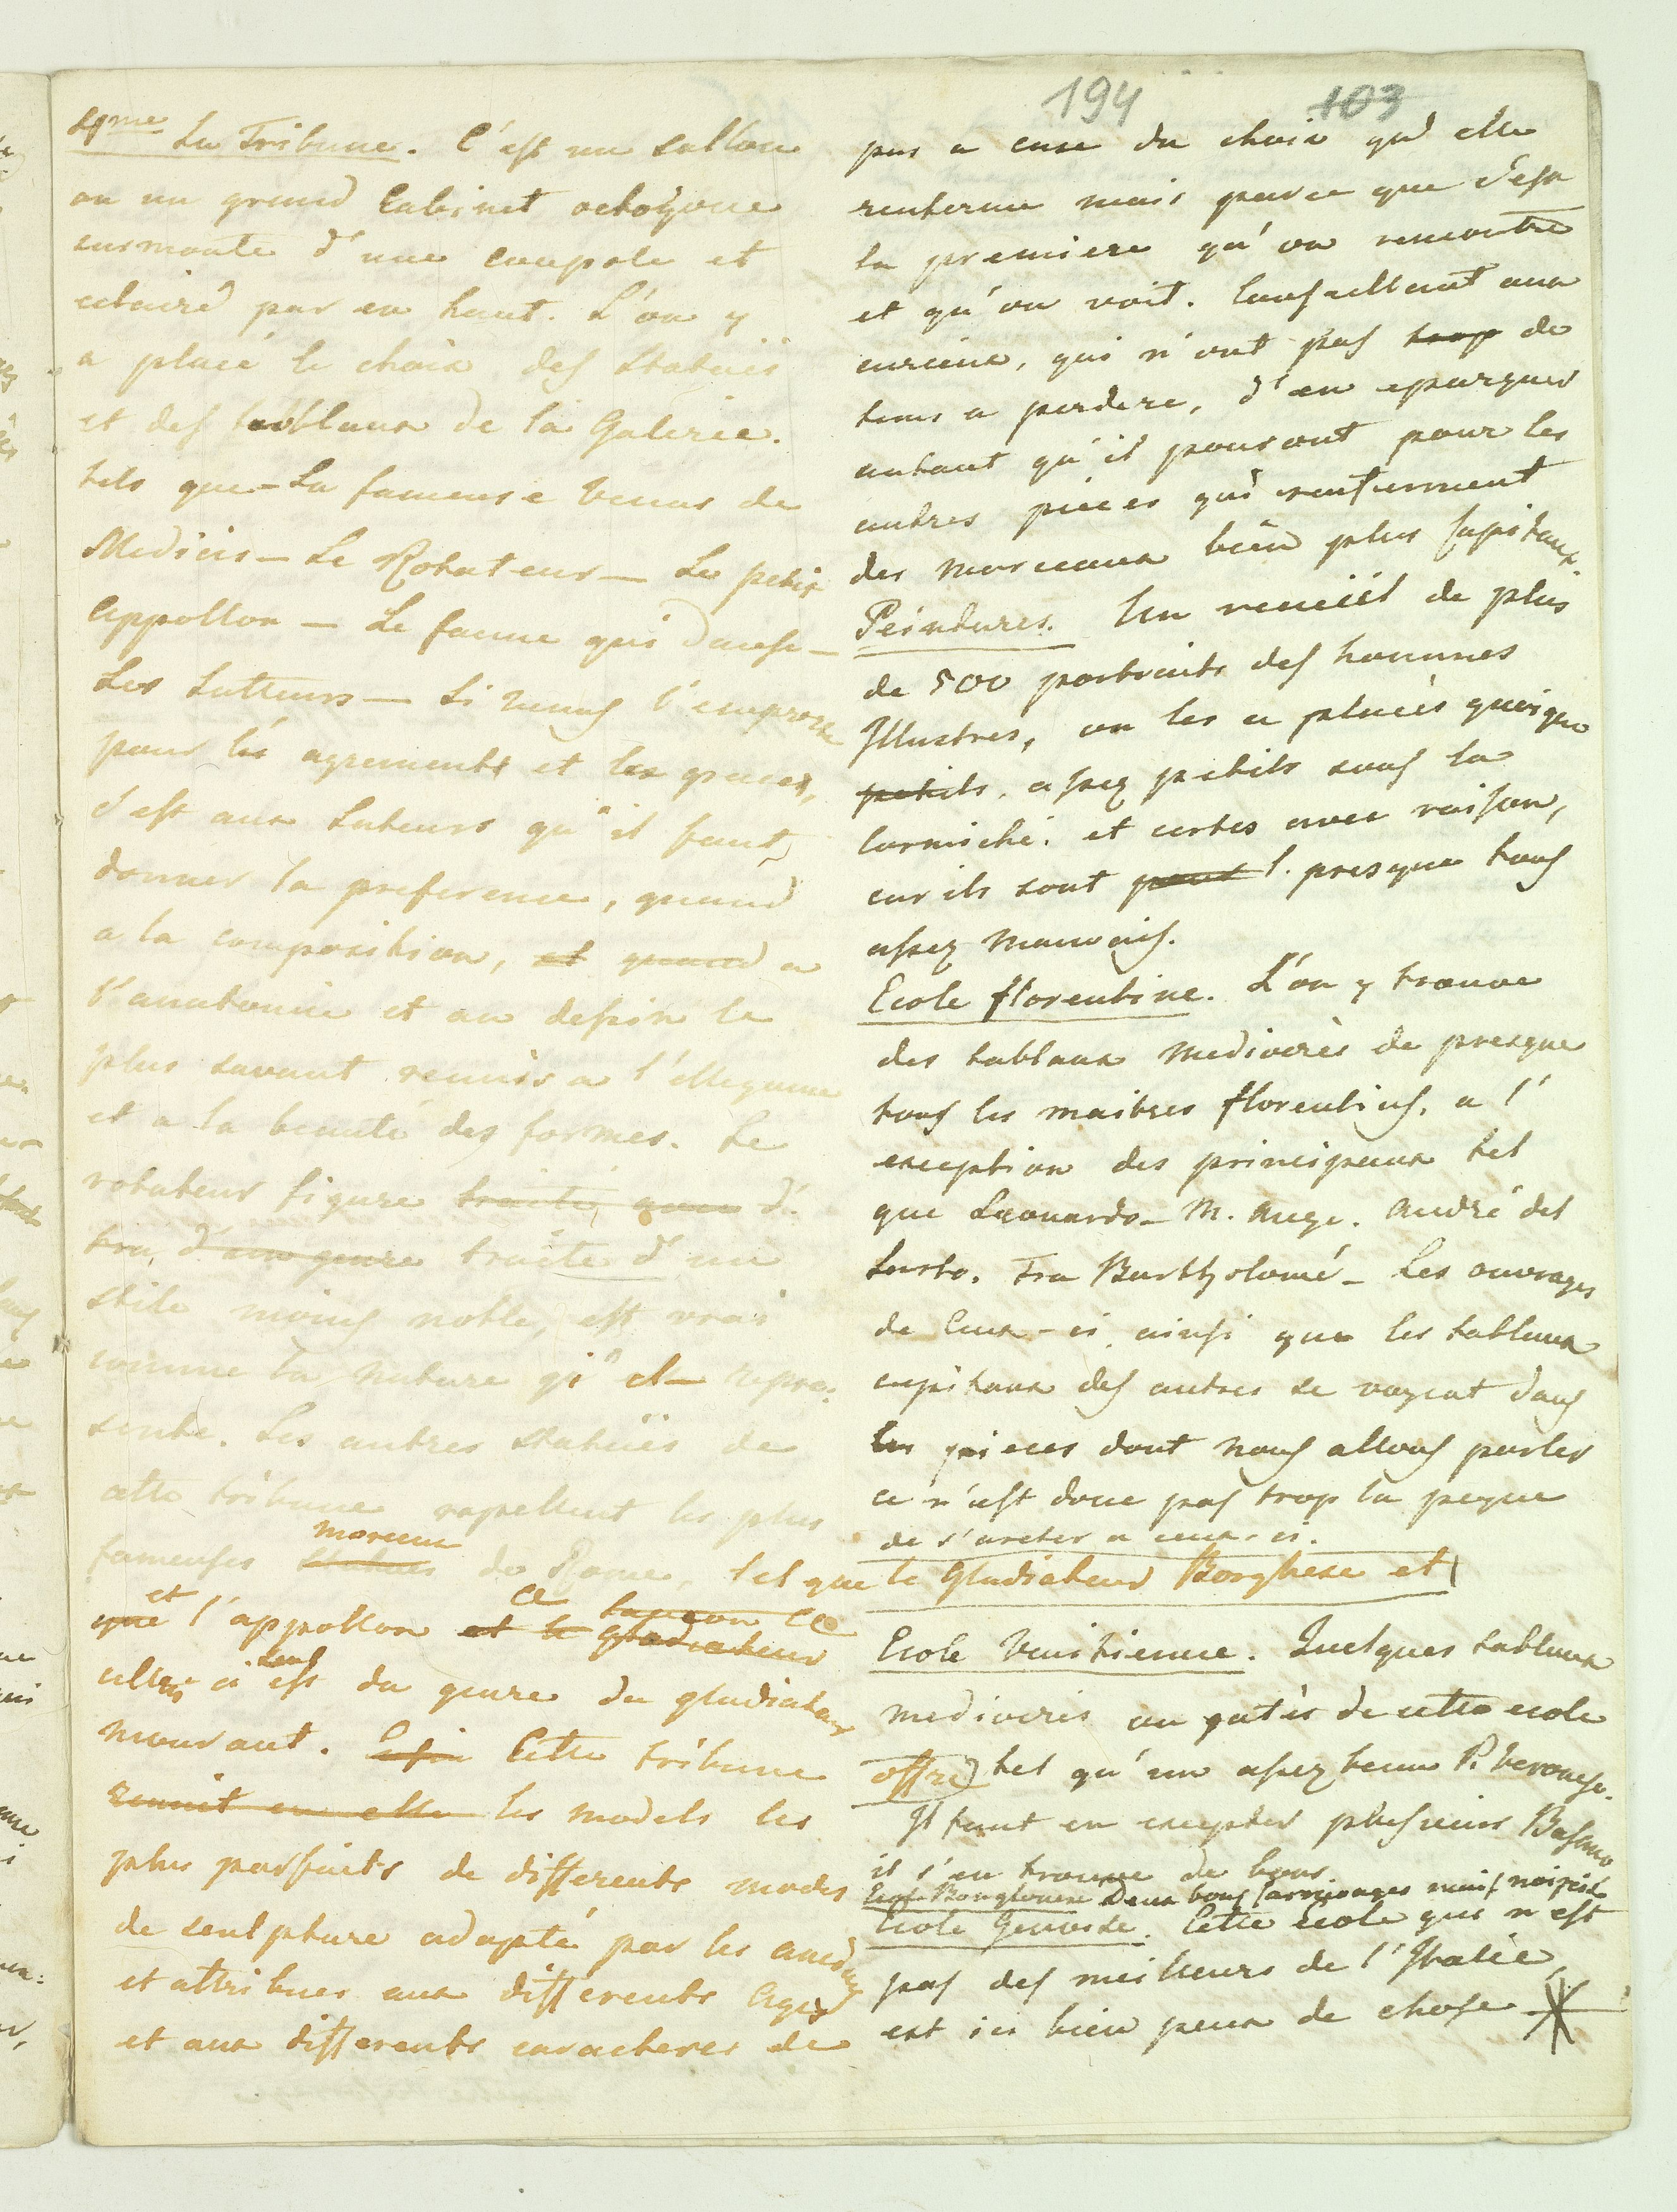 194 103
4me La Tribune. C'est un sallon
ou un grand Cabinet octogone
surmonte d'une coupole et
eclairé par en haut. L'on y
a placé le choix des Statües
et des tablaux de la Galerie.
tels que - La fameuse Venus de
Medicis - Le Rotateur - Le petit
Appollon - Le faune qui danse -
Les Lutteurs - Si Venus l'emporte
pour les agrements et les graces,
c'est aux Luteurs qu'il faut
donner la preference, quand
a la composition, et quand a
l'anatomie et au dessin le
plus savant reunis a l'ellegance
et a la beauté des formes. Le
rotateur figure traitée d'
traitée d'un
stile moins noble, est vrai
comme la nature qi'el repre-
sente. Les autres Statües de
cette tribune rapellent les plus
morceau
fameuses statues de Rome, tel que le Gladiateur Borghese et
et ce
que l'appollon et le gladiateur
seul
celles ci est du genre du gladiateur
mourant. Cette tribune
reunit en elle les models les
plus parfaits de differents modes
de sculpture adopté par les anciens
et attribues aux differents Ages
et aux differents caracteres de
pas a cause du choix qu'elle
renferme mais parce que c'est
la premiere qu'on rencontre
et qu'on voit. Conseillant aux
curieux, qui n'ont pas trop de
tems a perdere, d'en epargner
autant qu'il pouront pour les
autres pieces qui renferment
des morceaux bien plus Capitaux.
Peintures. Un recueil de plus
de 500 portraits des hommes
Illustres, on les a placés quoique
petits, assez petits sous la
Corniche. et certes avec raison,
car ils sont presque tous
assez mauvais.
Ecole florentine. L'on y trouve
des tablaux mediocres de presque
tous les maitres florentins, a l'
exception des principaux tel
que Leonardo - M. Ange. André del
Sarto. Fra Bartholomé - Les ouvrages
de Ceux-ci, ainsi que les tablaux
capitaux des autres se voyent dans
les pieces dont nous allons parler
ce n'est donc pas trop la peyne
de s'areter a ceux-ci.
Ecole Venitienne. Quelques tablaux
mediocres ou gatés de cette ecole
offre tel qu'un assez beau P. Veronese.
Il faut en excepter plusieurs Bassano
il s'en trouve de bons.
Deux bons mais
Ecole Genoise. Cette Ecole qui n'est
pas des meilleurs de l'Italie,
est ici bien peux de chose